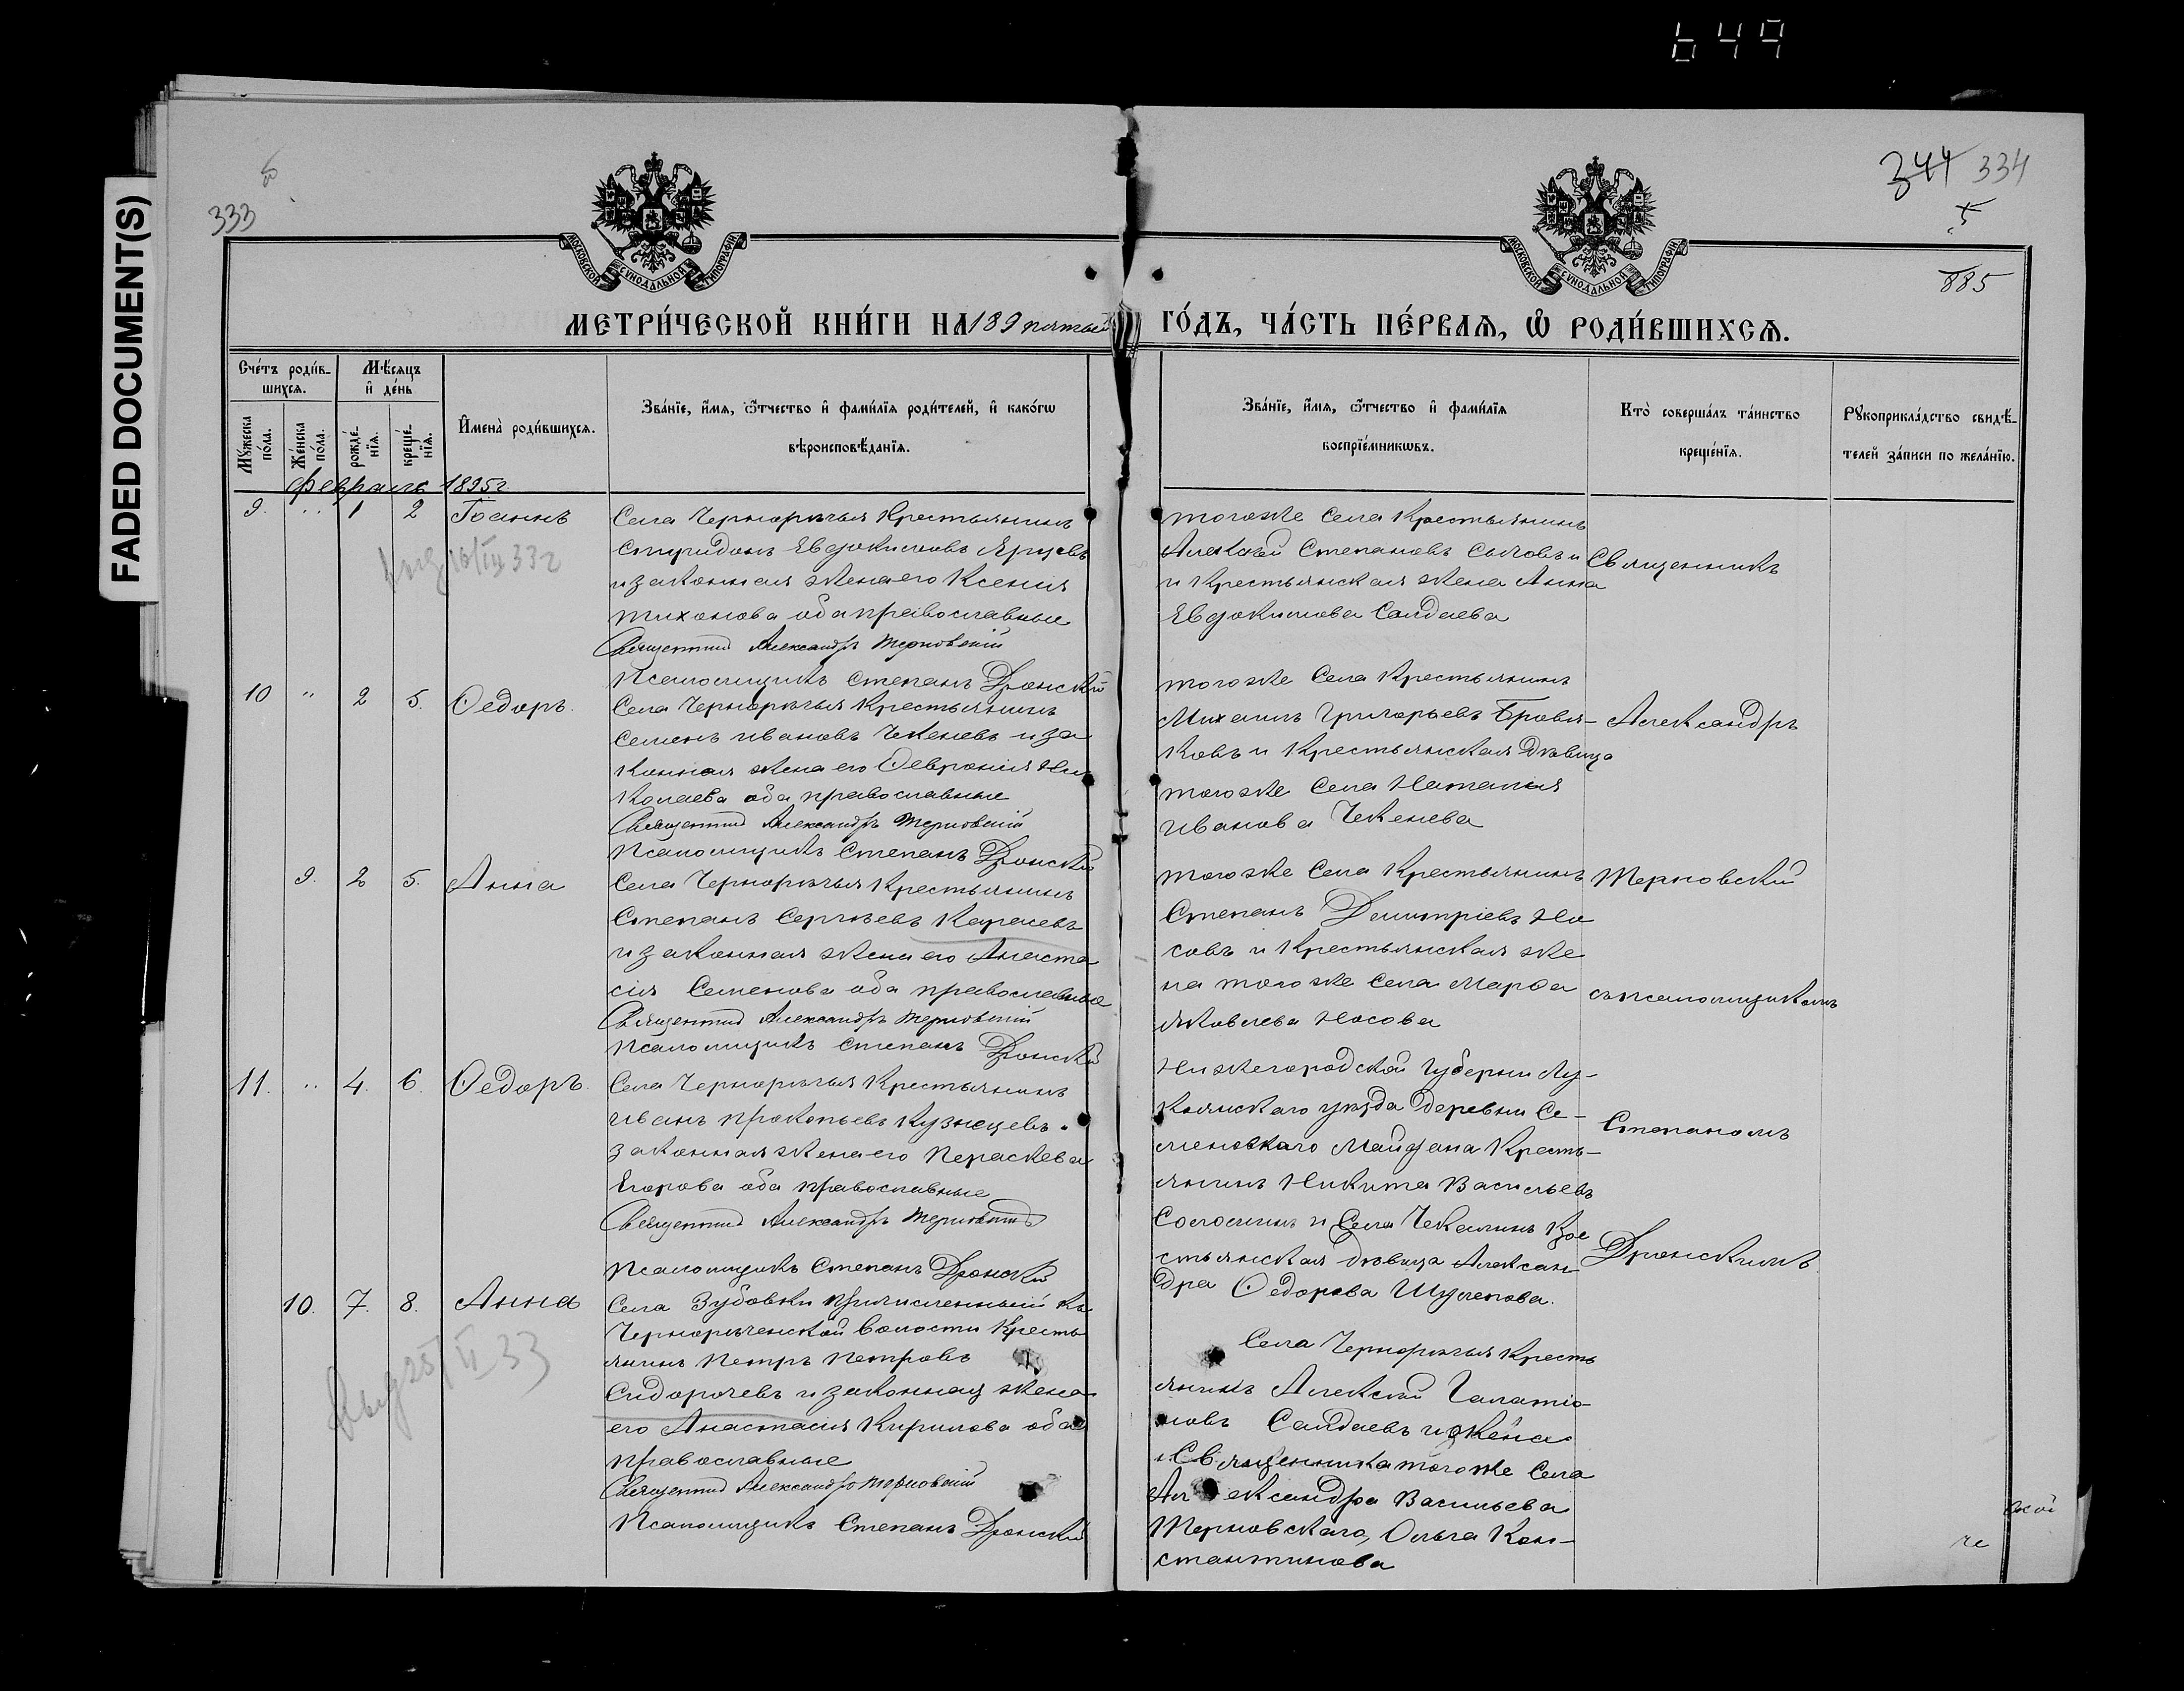 649
FADED DOCUMENT(S)
333
344 334
885
МОСКОВСКОЙ СУНОДАЛЬНОЙ ТИПОГРАФІИ
МОСКОВСКОЙ СУНОДАЛЬНОЙ ТИПОГРАФІИ
МЕТРИ́ЧЕСКОЙ КНИ́ГИ НА 189 пятый ГО́ДЪ, ЧА́СТЬ ПЕ́РВАѦ, Ѽ РОДИ́ВШИХСѦ.
Сче́тъ роди́в-
шихсѧ.
Мѣ́сяцъ
и҆ де́нь
Мꙋ́жеска
по́ла.
Же́нска
по́ла.
рожде́-
нїѧ.
креще́-
нїѧ.
И҆мена̀ роди́вшихсѧ.
Зва́нїе, и҆́мѧ, ѻ҆́тчество и҆ фами́лїѧ роди́телей, и҆ како́гѡ
вѣроисповѣ́данїѧ.
Зва́нїе, и҆́мѧ, ѻ҆́тчество и҆ фами́лїѧ
воспрїе́мникѡвъ.
Кто̀ соверша́лъ та́инство
креще́нїѧ.
Рꙋкоприкла́дство свидѣ́-
телей за́писи по жела́нїю.
Февраль 1895 г.
9. " 1 2 Іоаннъ
Села Чернорѣчья Крестьянинъ
Спиридонъ Евдокимовъ Ярцевъ
и законная жена его Ксенія
Тихонова оба православные
Священникъ Александръ Терновскій
Псаломщикъ Степанъ Дронскій
тогоже Села Крестьянинъ
Алексѣй Степановъ и
и Крестьянская жена Анна
Евдокимова Салдаева
Священникъ
10 " 2 5. Ѳедоръ.
Села Чернорѣчья Крестьянинъ
Семенъ Ивановъ Чекеневъ и за
конная жена его Ѳевронія Ни
колаева оба православные
Священникъ Александръ Терновскій
Псаломщикъ Степанъ Дронскій
тогоже Села Крестьянинъ
Михаилъ Григорьевъ Бровя-
ковъ и Крестьянская Дѣвица
тогоже Села Наталія
Иванова Чекенева
Александръ
9. 2 5. Анна
Села Чернорѣчья Крестьянинъ
Степанъ Сергѣевъ Карасевъ
и законная жена его Анаста
сія Семенова оба православные
Священникъ Александръ Терновскій
Псаломщикъ Степанъ Дронскій
тогоже Села Крестьянинъ
Степанъ Димитріевъ Но
совъ и Крестьянская же
на тогоже Села Марѳа
Яковлева Носова
Терновскій
съ псаломщикомъ
11. " 4. 6. Ѳедоръ.
Села Чернорѣчья Крестьянинъ
Иванъ Прокопьевъ Кузнецевъ и
законная жена его Параскева
Егорова оба православные
Священникъ Александръ Терновскій
Псаломщикъ Степанъ Дронскій
Нижегородской Губерніи Лу-
коянскаго уѣзда Деревни Се-
меновскаго Майдана Кресть-
янинъ Никита Васильевъ
и Села Чекалинъ Кре
стьянская дѣвица Алексан
дра Ѳедорова
Степаномъ
Дронскимъ
10. 7. 8. Анна
Села Зубовки причисленный къ
Чернорѣченской волости Кресть
янинъ Петръ Петровъ
Сидорочевъ и законная жена
его Анастасія Кирилова оба
православные
Священникъ Александръ Терновскій
Псаломщикъ Степанъ Дронскій
Села Чернорѣчья Кресть
янинъ Алексѣй Галатіо-
новъ Салдаевъ и жена
Священника тогоже Села
Александра Васильева
Терновскаго, Ольга Кон-
стантинова